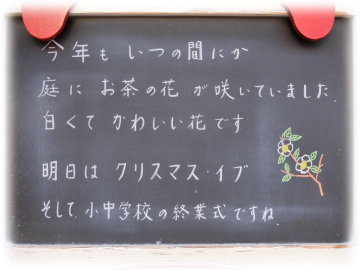 今年も いつの間にか
庭に お茶の花 が 咲いていました
白くて かわいい花です
明日は クリスマス・イブ
そして、小中学校の終業式ですね